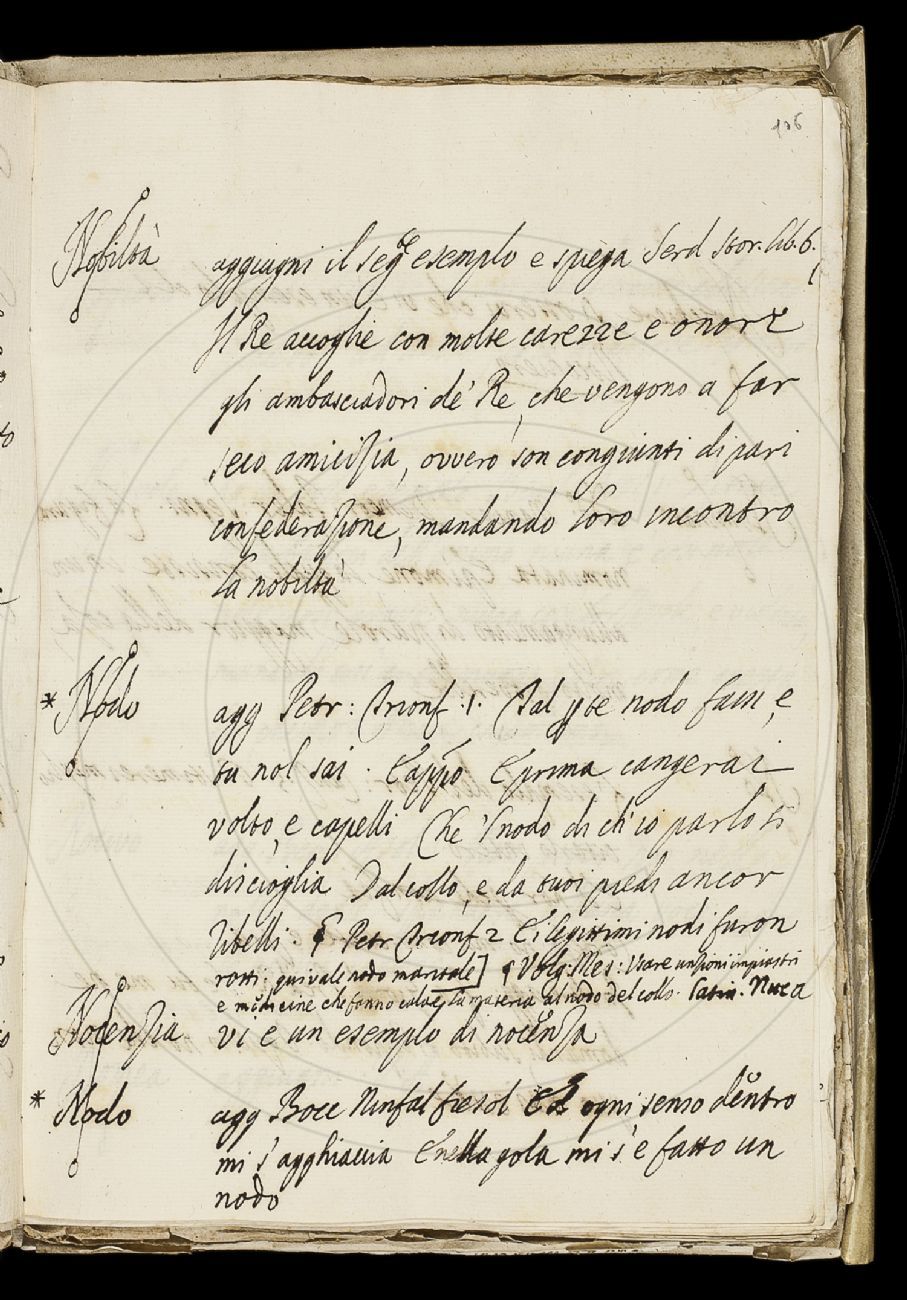 106
Nobiltà aggiugni il seg.e esemplo e spiega Serd stor. lib. 6.
Il Re accoglie con molte carezze e onore
gli ambasciadori de' Re, che vengono a far
seco amicizia, ovvero son congiunti di pari
confederazione, mandando loro incontro
la nobiltà
* Nodo agg Petr: Trionf .1. Tal p te nodo fassi, e
tu nol sai . E app.o E prima cangerai
volto, e capelli Che 'l nodo di ch' io parlo si
discioglia Dal collo, e da tuoi piedi ancor
ribelli . Petr Trionf 2 E i legittimi nodi furon
rotti . qui vale nodo maritale] Volg. Mes: Usare unzioni impiastri
e medicine che fanno calare la materia al nodo del collo . Latin. Nuca
Nocenzia vi e un esemplo di nocenza
* Nodo agg Bocc Ninfal fiesol Ed ogni senso dentro
mi s' agghiaccia E nella gola mi s' e fatto un
nodo